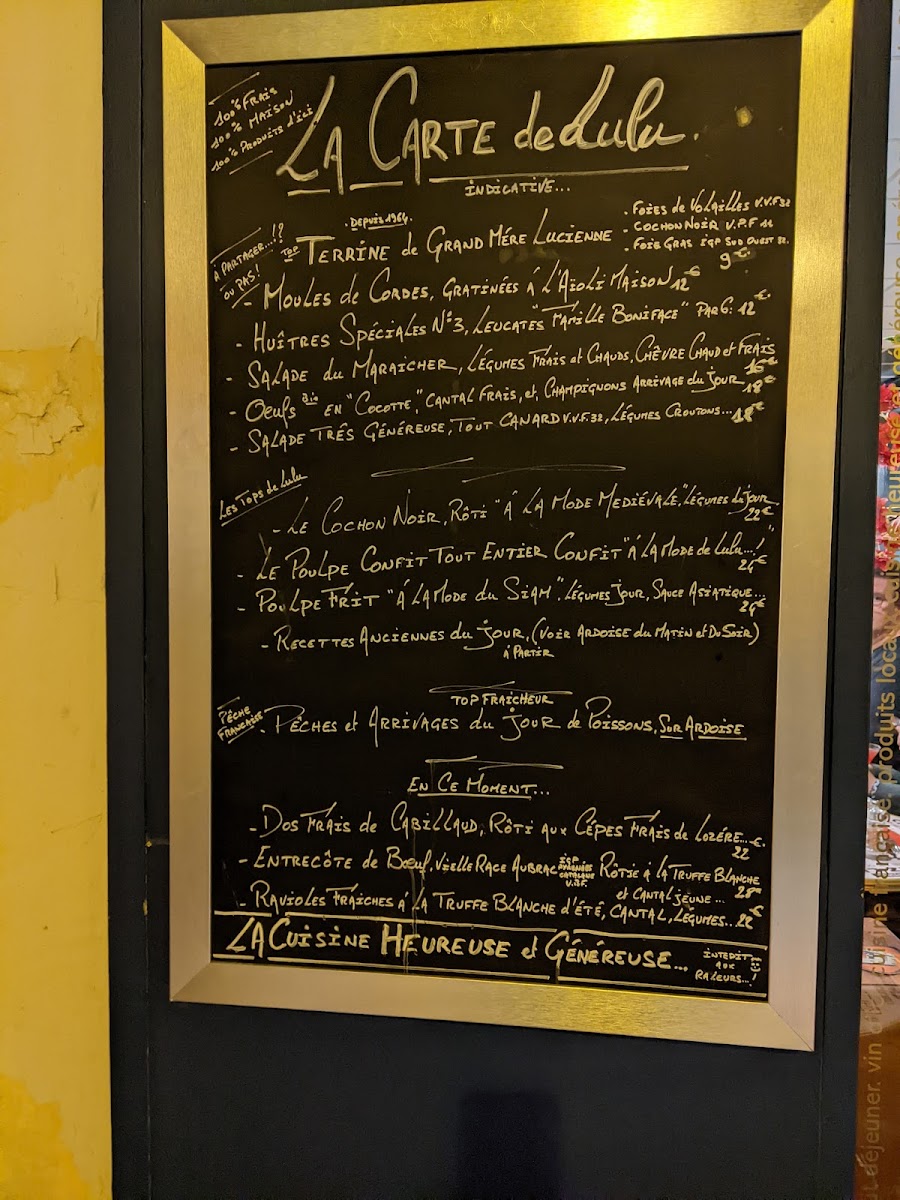 100% FRAIS
100% MAISON
100% PRODUITS d'ICI
LA CARTE de Lulu.
INDICATIVE...
À PARTAGER...!?
OU PAS!
. DEPUIS 1964.
TOP TERRINE de GRAND MÉRE LUCIENNE
. FOIES de VOLAILLES V.V.F 32
- COCHON NOIR V.P.F 11
. FOIE GRAS IGP SUD OUEST 32.
9€.
- MOULES de CORDES, GRATINÉES Á L'AÏOLI MAISON 12€
- HUÎTRES SPÉCIALES N°3, LEUCATE "FAMILLE BONIFACE" PAR 6: 12€
- SALADE du MARAICHER, LÉGUMES FRAIS et CHAUDS, CHÊVRE CHAUD et FRAIS
16€
- OEUFS Bio EN "COCOTTE", CANTAL FRAIS, et CHAMPIGNONS ARRIVAGE du JOUR 18€
- SALADE TRÊS GÉNÉREUSE, TOUT CANARD V.V.F. 32, LÉGUMES CROUTONS... 18€
Les Tops de Lulu
- LE COCHON NOIR, RÔTI "Á LA MODE MEDIÉVALE," LÉGUMES du JOUR
22€
- LE POULPE CONFIT TOUT ENTIER CONFIT "Á LA MODE de LULU...!"
24€
- POULPE FRIT "Á LA MODE du SIAM". LÉGUMES JOUR, SAUCE ASIATIQUE...
24€
- RECETTES ANCIENNES du JOUR, (VOIR ARDOISE du MATIN et DU SOIR)
á PARTIR
TOP FRAICHEUR
PÊCHE
FRANCAISE
- PÊCHES et ARRIVAGES du JOUR de POISSONS, SUR ARDOISE
EN CE MOMENT...
- DOS FRAIS de CABILLAUD, RÔTI AUX CÉPES FRAIS de LOZÉRE...
22€.
- ENTRECÔTE de BŒUF, VIELLE RACE AUBRAC IGP PYRÉNÉES CATALANES V.B.F. RÔTIE á LA TRUFFE BLANCHE
et CANTAL JEUNE... 28€
- RAVIOLES FRAÎCHES Á LA TRUFFE BLANCHE d'ÉTÉ, CANTAL, LÉGUMES... 22€
LA CUISINE HEUREUSE et GÉNÉREUSE...
INTEDIT
AUX
RALEURS...!